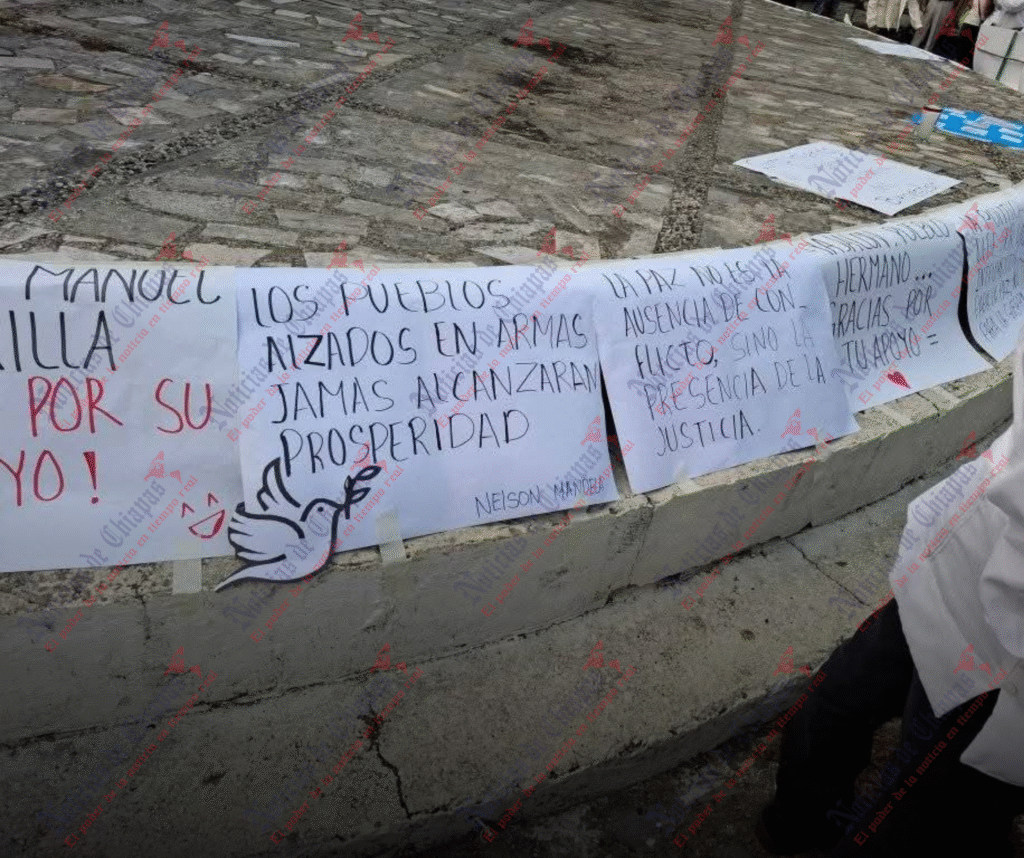 MANUEL
ILLA
POR SU
YO!
LOS PUEBLOS
ALZADOS EN ARMAS
JAMAS ALCANZARAN
PROSPERIDAD
NELSON MANDELA
LA PAZ NO ES LA
AUSENCIA DE CON-
FLICTO, SINO LA
PRESENCIA DE LA
JUSTICIA.
HERMANO...
GRACIAS POR
TU APOYO =
Noticias de Chiapas
El poder de la noticia en tiempo real